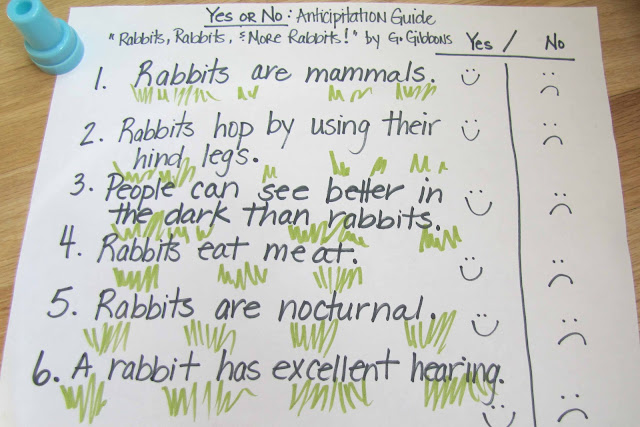 Yes or No: Anticipitation Guide
"Rabbits, Rabbits, & More Rabbits!" by G. Gibbons Yes / No
1. Rabbits are mammals.
2. Rabbits hop by using their
hind legs.
3. People can see better in
the dark than rabbits.
4. Rabbits eat meat.
5. Rabbits are nocturnal.
6. A rabbit has excellent hearing.